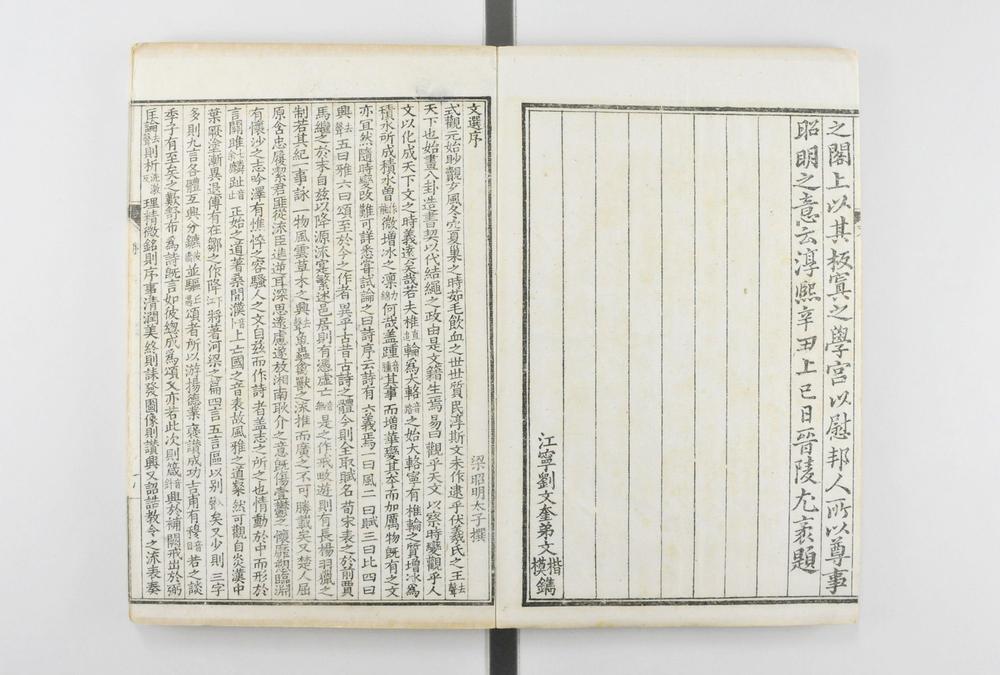 之閣上以其板寘之學宮以慰邦人所以尊事
昭明之意云淳熙辛丑上巳日晉陵尤袤題
江寧劉文奎弟文楷模鐫
文選序
梁昭明太子撰
式觀元始眇覿玄風冬穴夏巢之時茹毛飲血之世世質民淳斯文未作逮乎伏羲氏之王去聲
天下也始畫八卦造書契以代結繩之政由是文籍生焉易曰觀乎天文以察時變觀乎人
文以化成天下文之時義遠矣哉若夫椎直追輪為大輅音路之始大輅寧有椎輪之質增冰為
積水所成積水曾微增冰之凜力錦何哉蓋踵其事而增華變其本而加厲物既有之文
亦宜然隨時變改難可詳悉嘗試論之曰詩序云詩有六義焉一曰風二曰賦三曰比四曰
興去聲五曰雅六曰頌至於今之作者異乎古昔古詩之體今則全取賦名荀宋表之於前賈
馬繼之於末自茲以降源流寔繁述邑居則有憑虛亡音無是之作戒畋遊則有長楊羽獵之
制若其紀一事詠一物風雲草木之興去聲魚蟲禽獸之流推而廣之不可勝載矣又楚人屈
原含忠履潔君匪從流臣進逆耳深思遠慮遂放湘南耿介之意既傷壹鬱之懷靡愬臨淵
有懷沙之志吟澤有憔悴之容騷人之文自茲而作詩者蓋志之所之也情動於中而形於
言關雎七余麟趾音止正始之道著桑間濮音卜上亡國之音表故風雅之道粲然可觀自炎漢中
葉厥塗漸異退傅有在鄒之作降下江將著河梁之篇四言五言區以別矣又少則三字
多則九言各體互興分鑣並驅頌者所以游揚德業褒讚成功吉甫有穆若之談
季子有至矣之歎舒布為詩既言如彼總成為頌又亦若此次則箴興於補闕戒出於弼
匡論去聲則析理精微銘則序事清潤美終則誄發圖像則讚興又詔誥教令之流表奏